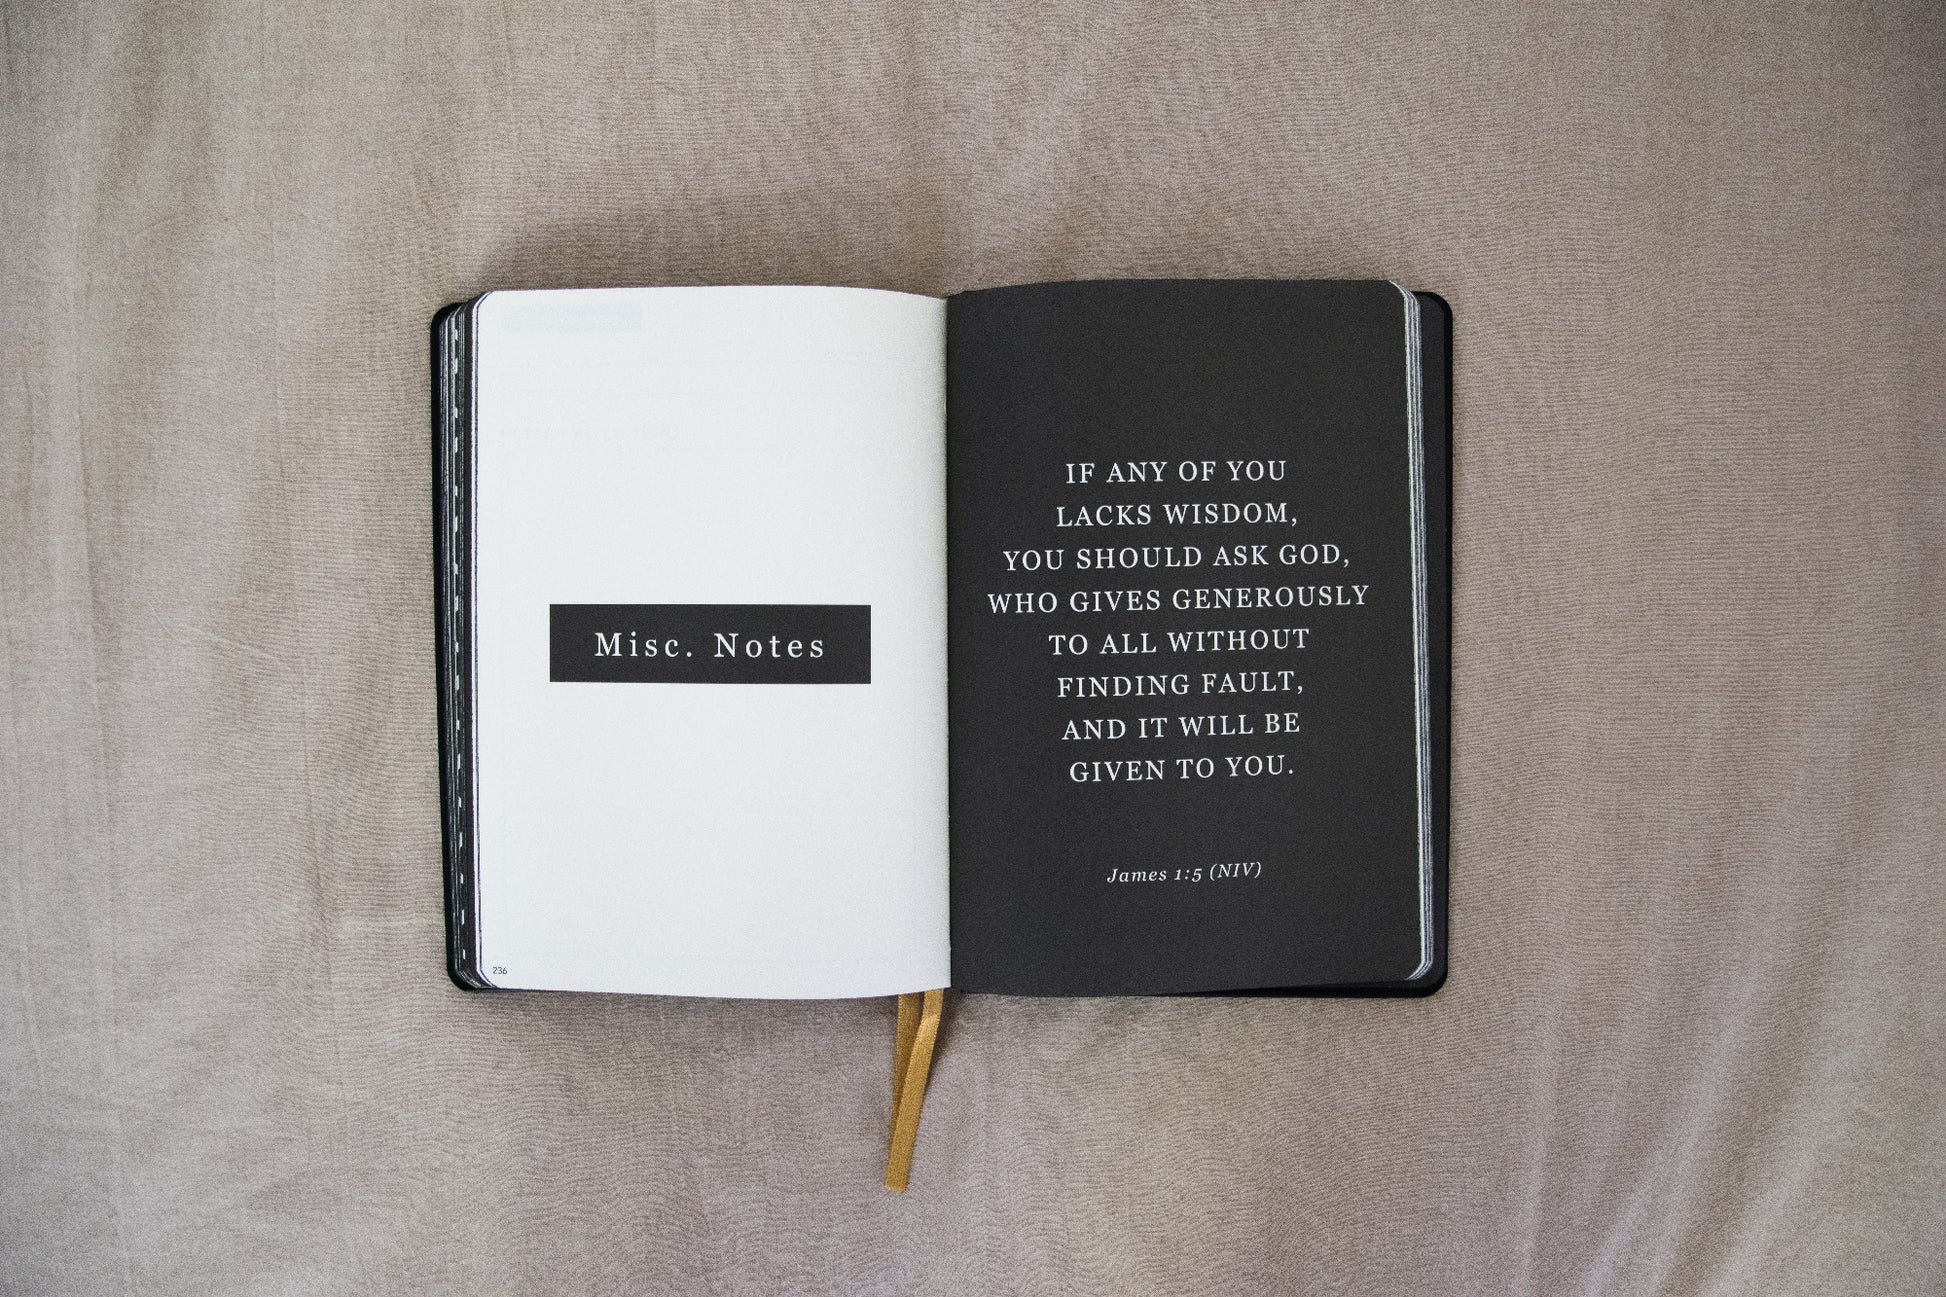 Misc. Notes
236
IF ANY OF YOU
LACKS WISDOM,
YOU SHOULD ASK GOD,
WHO GIVES GENEROUSLY
TO ALL WITHOUT
FINDING FAULT,
AND IT WILL BE
GIVEN TO YOU.
James 1:5 (NIV)